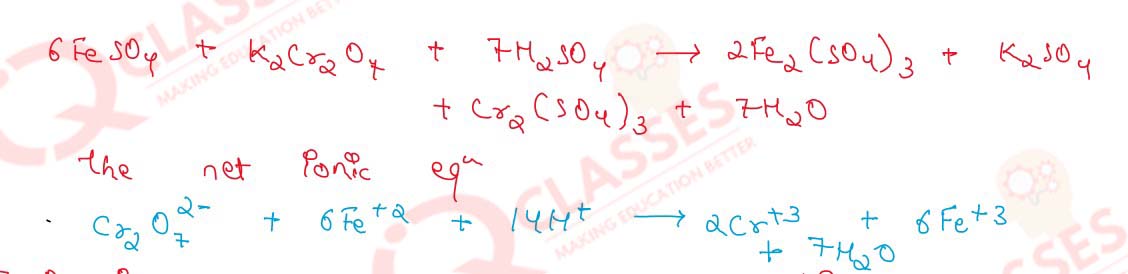 6FeSO₄ + K₂Cr₂O₇ + 7H₂SO₄ → 2Fe₂(SO₄)₃ + K₂SO₄
+ Cr₂(SO₄)₃ + 7H₂O
the net ionic eqⁿ
Cr₂O₇²⁻ + 6Fe⁺² + 14H⁺ → 2Cr⁺³ + 6Fe⁺³
+ 7H₂O
CLASSES
MAKING EDUCATION BETTER
CLASSES
MAKING EDUCATION BETTER